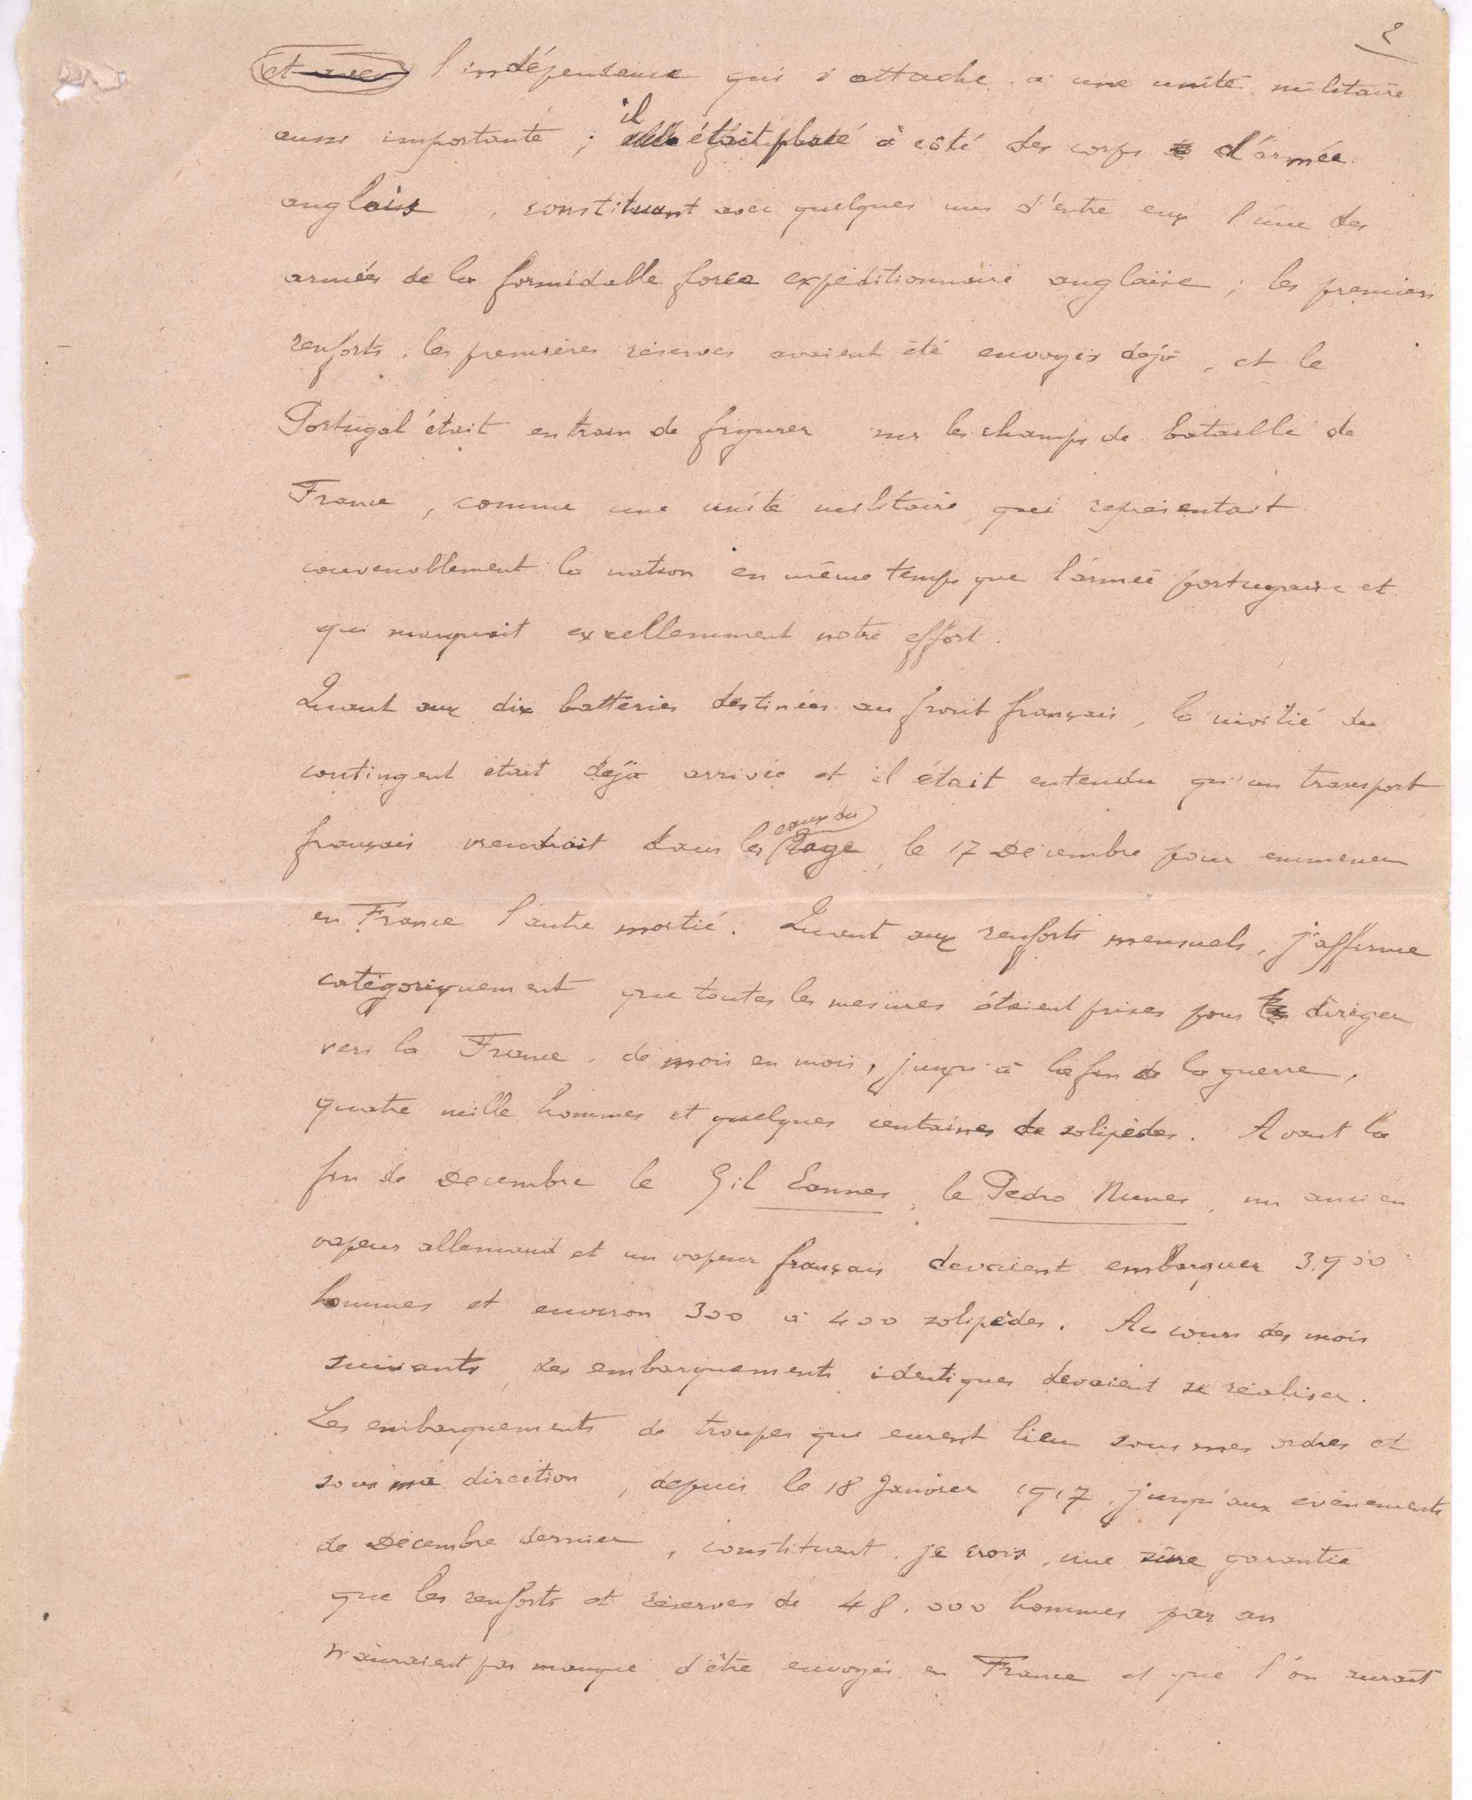 2
et avec l'indépendance qui s'attache à une unité militaire
aussi importante ; il était placé à côté des corps d'armée
anglais, constituant avec quelques uns d'entre eux l'une des
armées de la formidable force expéditionnaire anglaise ; les premiers
renforts, les premières réserves avaient été envoyés déjà, et le
Portugal était en train de figurer sur les champs de bataille de
France, comme une unité militaire, qui représentait
convenablement la nation en même temps que l'armée portugaise et
qui marquait excellemment notre effort.
Quant aux dix batteries destinées au front français, la moitié du
contingent était déjà arrivée et il était entendu qu'un transport
français viendrait dans les eaux du Tage, le 17 Décembre pour emmener
en France l'autre moitié. Quant aux renforts mensuels, j'affirme
catégoriquement que toutes les mesures étaient prises pour diriger
vers la France, de mois en mois, jusqu'à la fin de la guerre,
quatre mille hommes et quelques centaines de solipèdes. Avant la
fin de Decembre le Gil Eannes, le Pedro Nunes, un ancien
vapeur allemand et un vapeur français devaient embarquer 3.900
hommes et environ 300 à 400 solipèdes. Au cours des mois
suivants, des embarquements identiques devaient se réaliser.
Les embarquements de troupes que eurent lieu sous mes ordres et
sous ma direction, depuis le 18 Janvier 1917, jusqu'aux evénements
de Décembre dernier, constituent, je crois, une sûre garantie
que les renforts et réserves de 48.000 hommes par an
n'auraient pas manqué d'être envoyés en France et que l'on aurait